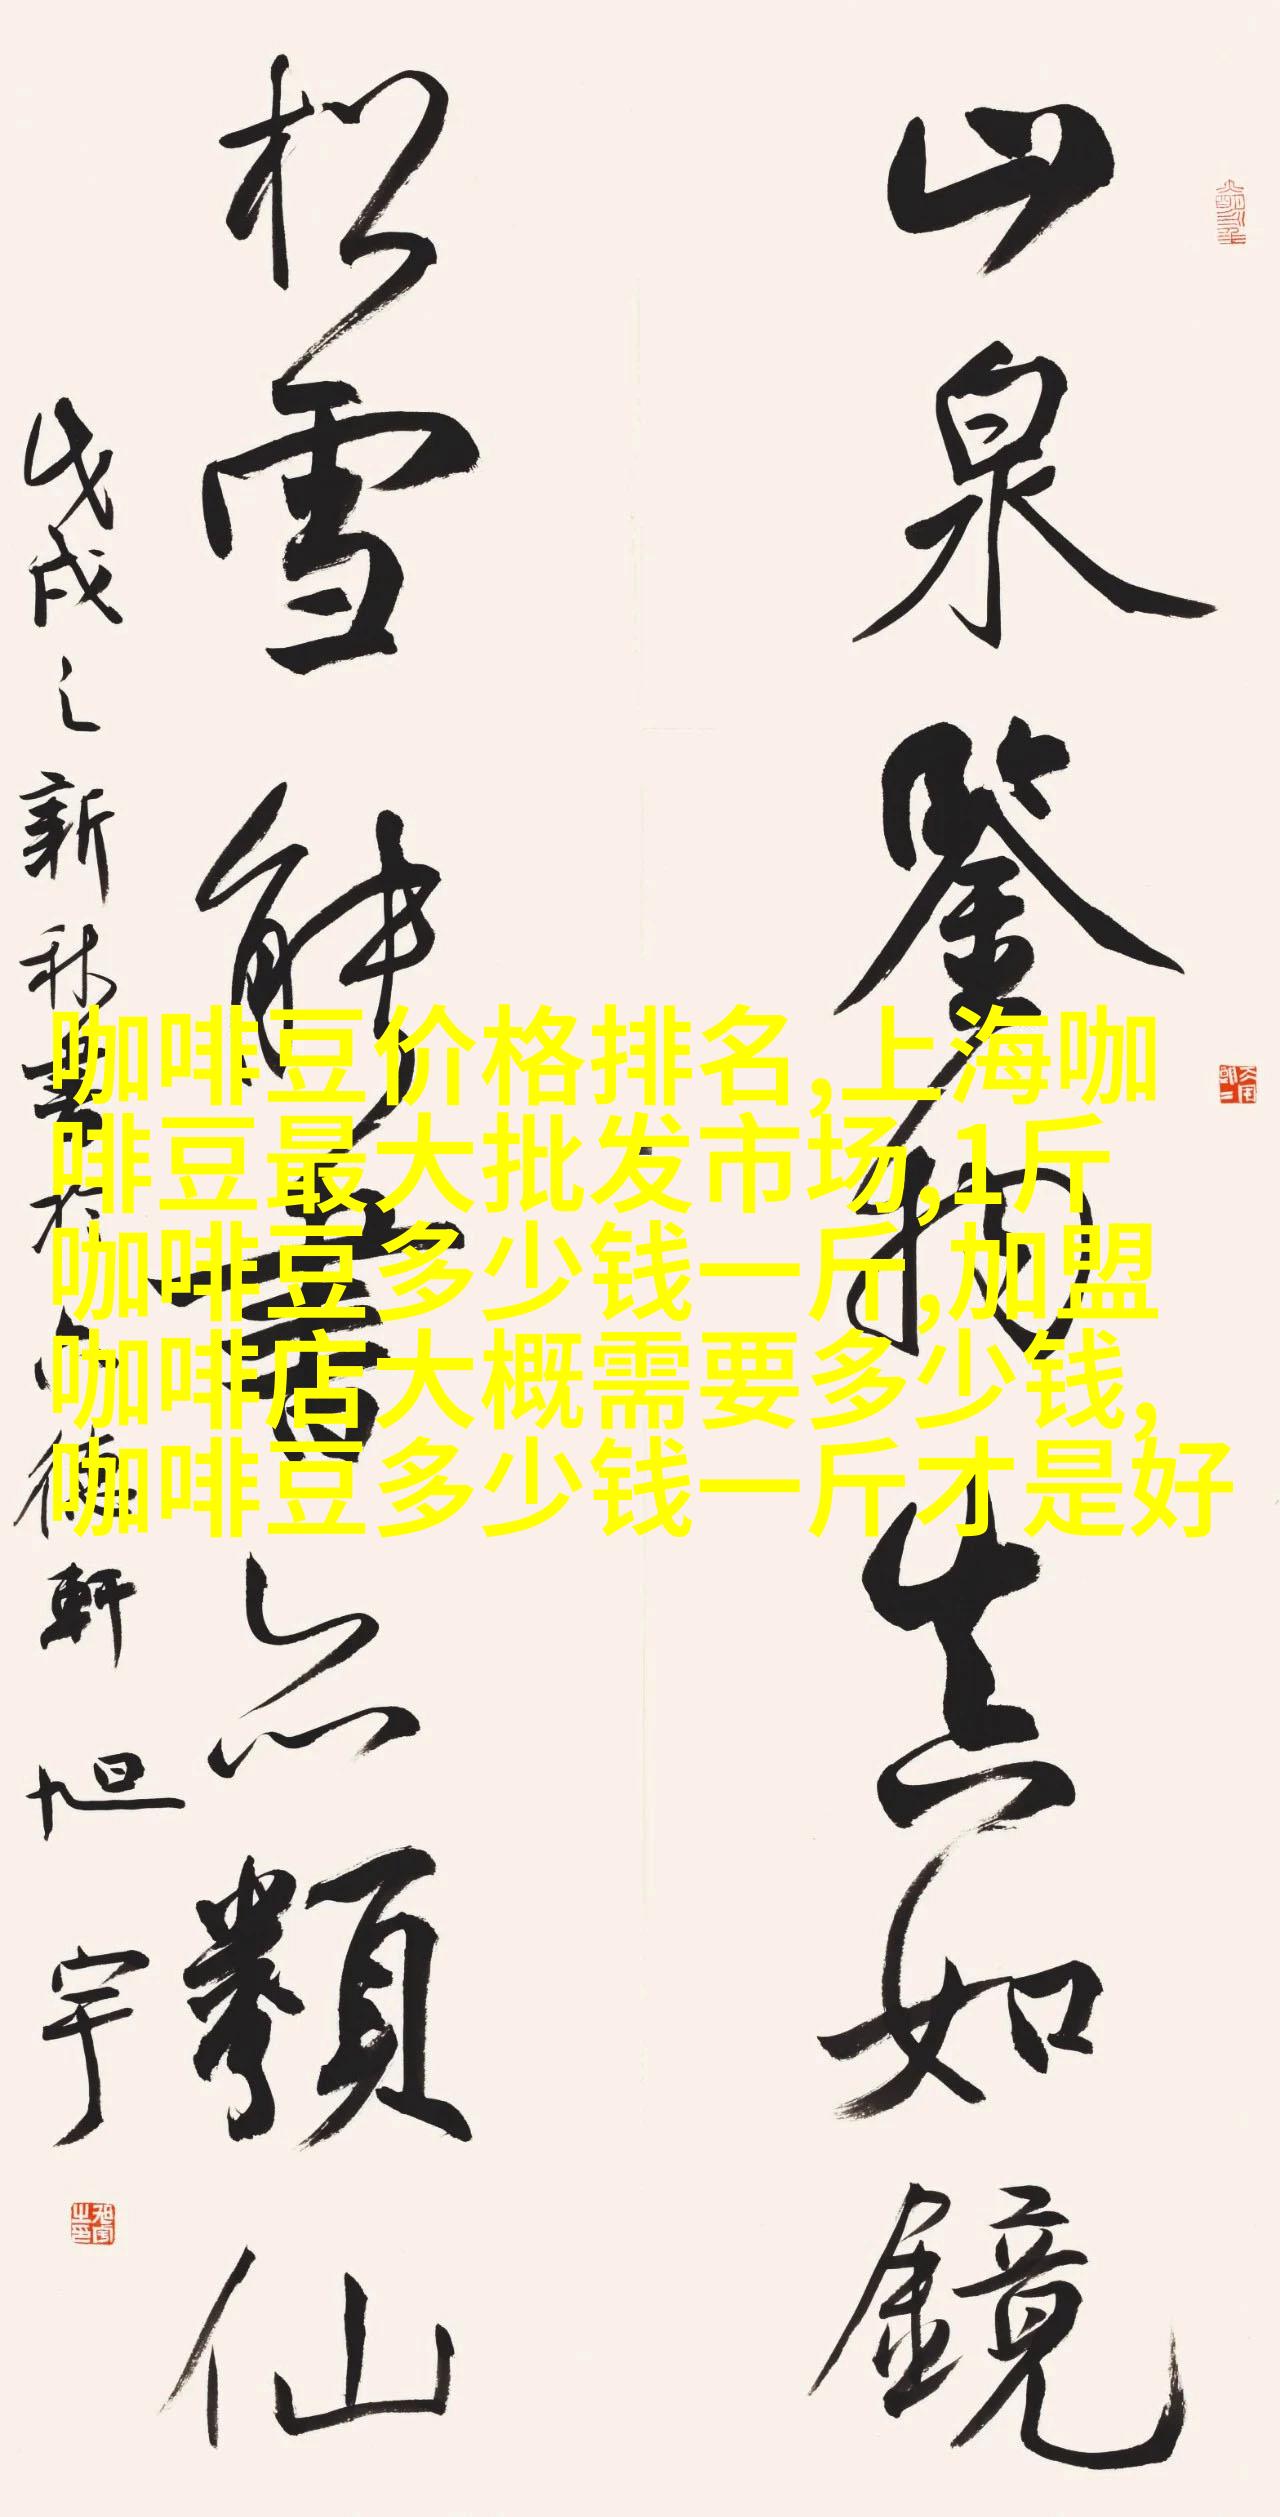 山泉鑒物真如鏡
松雪融春亦類仙
戊戌之新秋
軒旭宇
咖啡豆价格排名,上海咖
啡豆最大批发市场,1斤
咖啡豆多少钱一斤,加盟
咖啡店大概需要多少钱,
咖啡豆多少钱一斤才是好